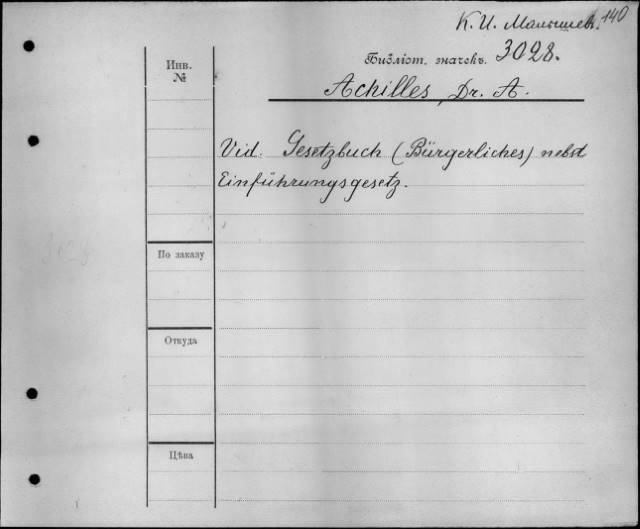 К. И. Малышев. 140
Библіот. значекъ. 3028.
Achilles, Dr. A.
Инв. №
Vid. Gesetzbuch (Bürgerliches) nebst
Einführungsgesetz.
По заказу
Откуда
Цѣна